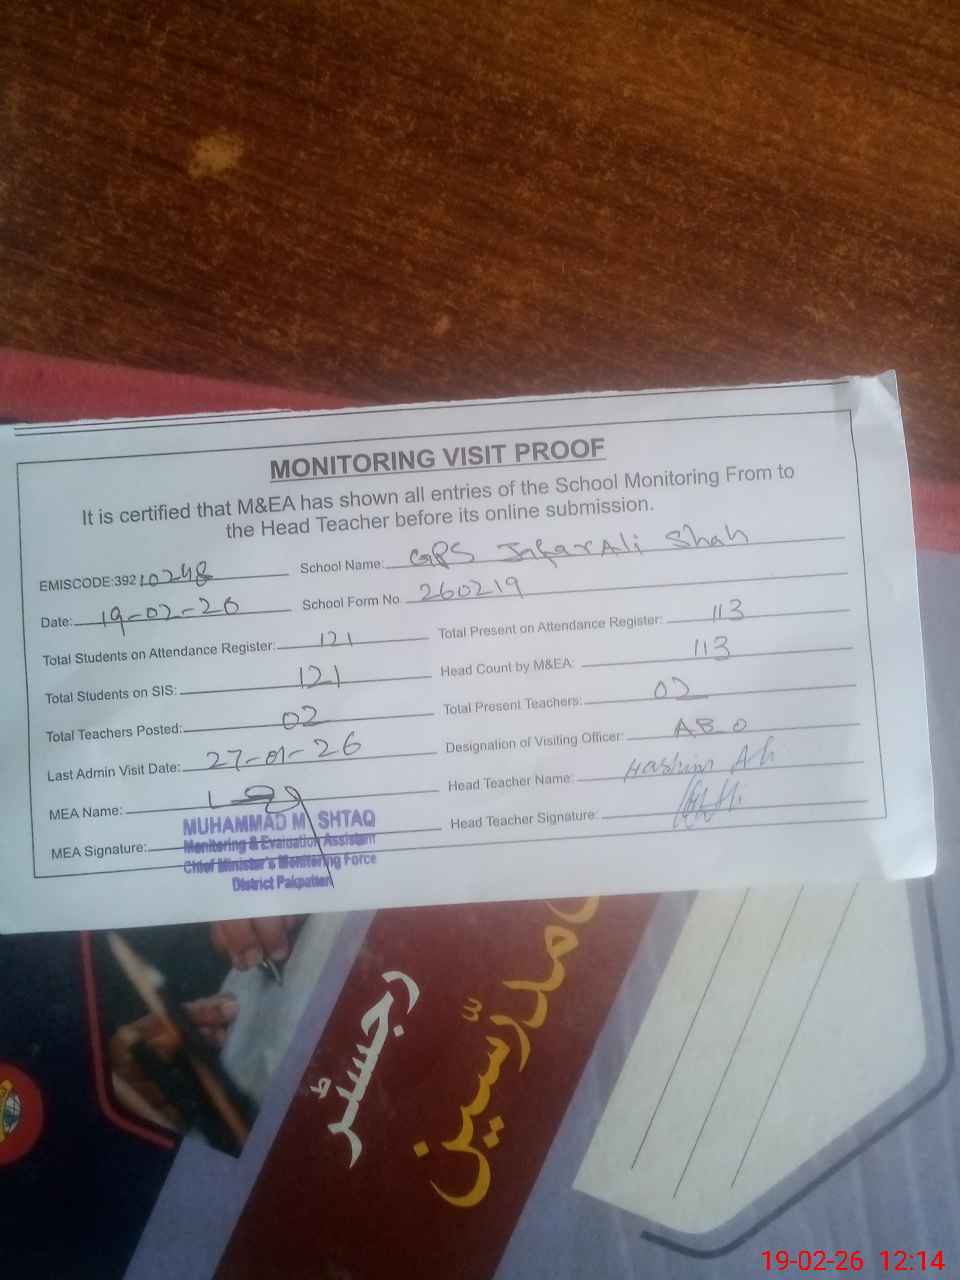 MONITORING VISIT PROOF
It is certified that M&EA has shown all entries of the School Monitoring From to
the Head Teacher before its online submission.
EMISCODE:392 10248 School Name: GPS Jafar Ali Shah
Date: 19-02-26 School Form No. 260219
Total Students on Attendance Register: 121 Total Present on Attendance Register: 113
Total Students on SIS: 121 Head Count by M&EA: 113
Total Teachers Posted: 02 Total Present Teachers: 02
Last Admin Visit Date: 27-01-26 Designation of Visiting Officer: AEO
MEA Name: Head Teacher Name: Hashim Ali
MEA Signature: Head Teacher Signature:
MUHAMMAD MUSHTAQ
Monitoring & Evaluation Assistant
Chief Minister's Monitoring Force
District Pakpattan
رجسٹر
مدرّسین
19-02-26 12:14